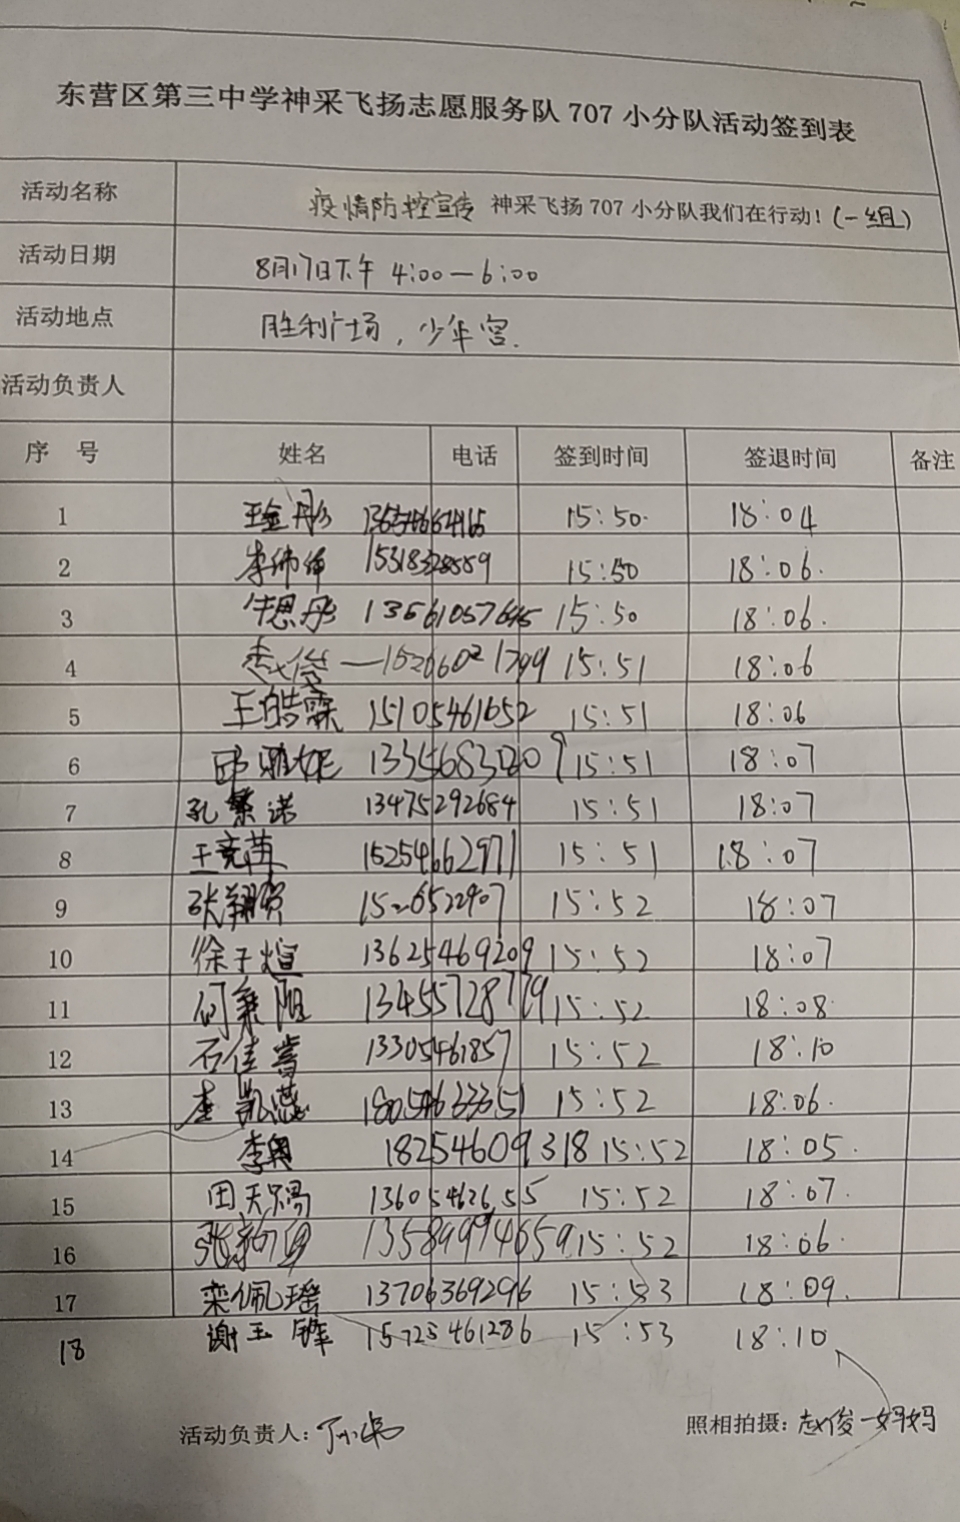 东营区第三中学神采飞扬志愿服务队 707 小分队活动签到表
活动名称 疫情防控宣传 神采飞扬 707 小分队我们在行动! (一组)
活动日期 8月17日下午 4:00—6:00
活动地点 胜利广场, 少年宫.
活动负责人
序 号 姓名 电话 签到时间 签退时间 备注
1 15:50 18:04
2 15:50 18:06
3 牛思彤 13561057645 15:50 18:06
4 赵俊一 15206021799 15:51 18:06
5 王皓霖 15105461652 15:51 18:06
6 邱雅妮 15:51 18:07
7 孔繁诺 13475292684 15:51 18:07
8 王竞苒 15254662971 15:51 18:07
9 张翔贺 15:52 18:07
10 徐子煊 13625469209 15:52 18:07
11 何秉阳 13455728779 15:52 18:08
12 石佳 13305461857 15:52 18:10
13 李凯 18054633351 15:52 18:06
14 李奥 18254609318 15:52 18:05
15 田天 13605462655 15:52 18:07
16 张 13589994659 15:52 18:06
17 栾佩瑶 13706369296 15:53 18:09
18 谢玉锋 15725461286 15:53 18:10
活动负责人: 照相拍摄: 赵俊一妈妈